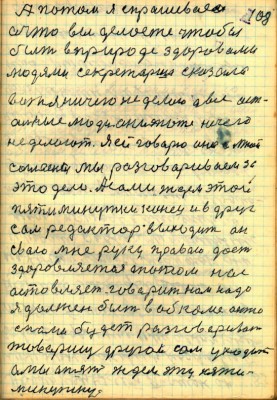 А потом я спрашиваю 108
а что вы делаете чтобы
быт в природе здоровами
людями секретарша сказала
вот я ничего не делаю а все ост-
альные люди они тоже ничего
не делают. Я ей говорю она с мной
согласна мы разговариваем за
это дело. А сами ждем этой
пятиминутки конец и в друг
сам редактор выходит он
свою мне руку праваю дает
здоровляется а потом нас
оставляет говорит нам надо
я должен быт в обкоме а сто
с вами будет разговариват
товарищ другой сам уходит
а мы опят ждем эту пяти-
минутку.